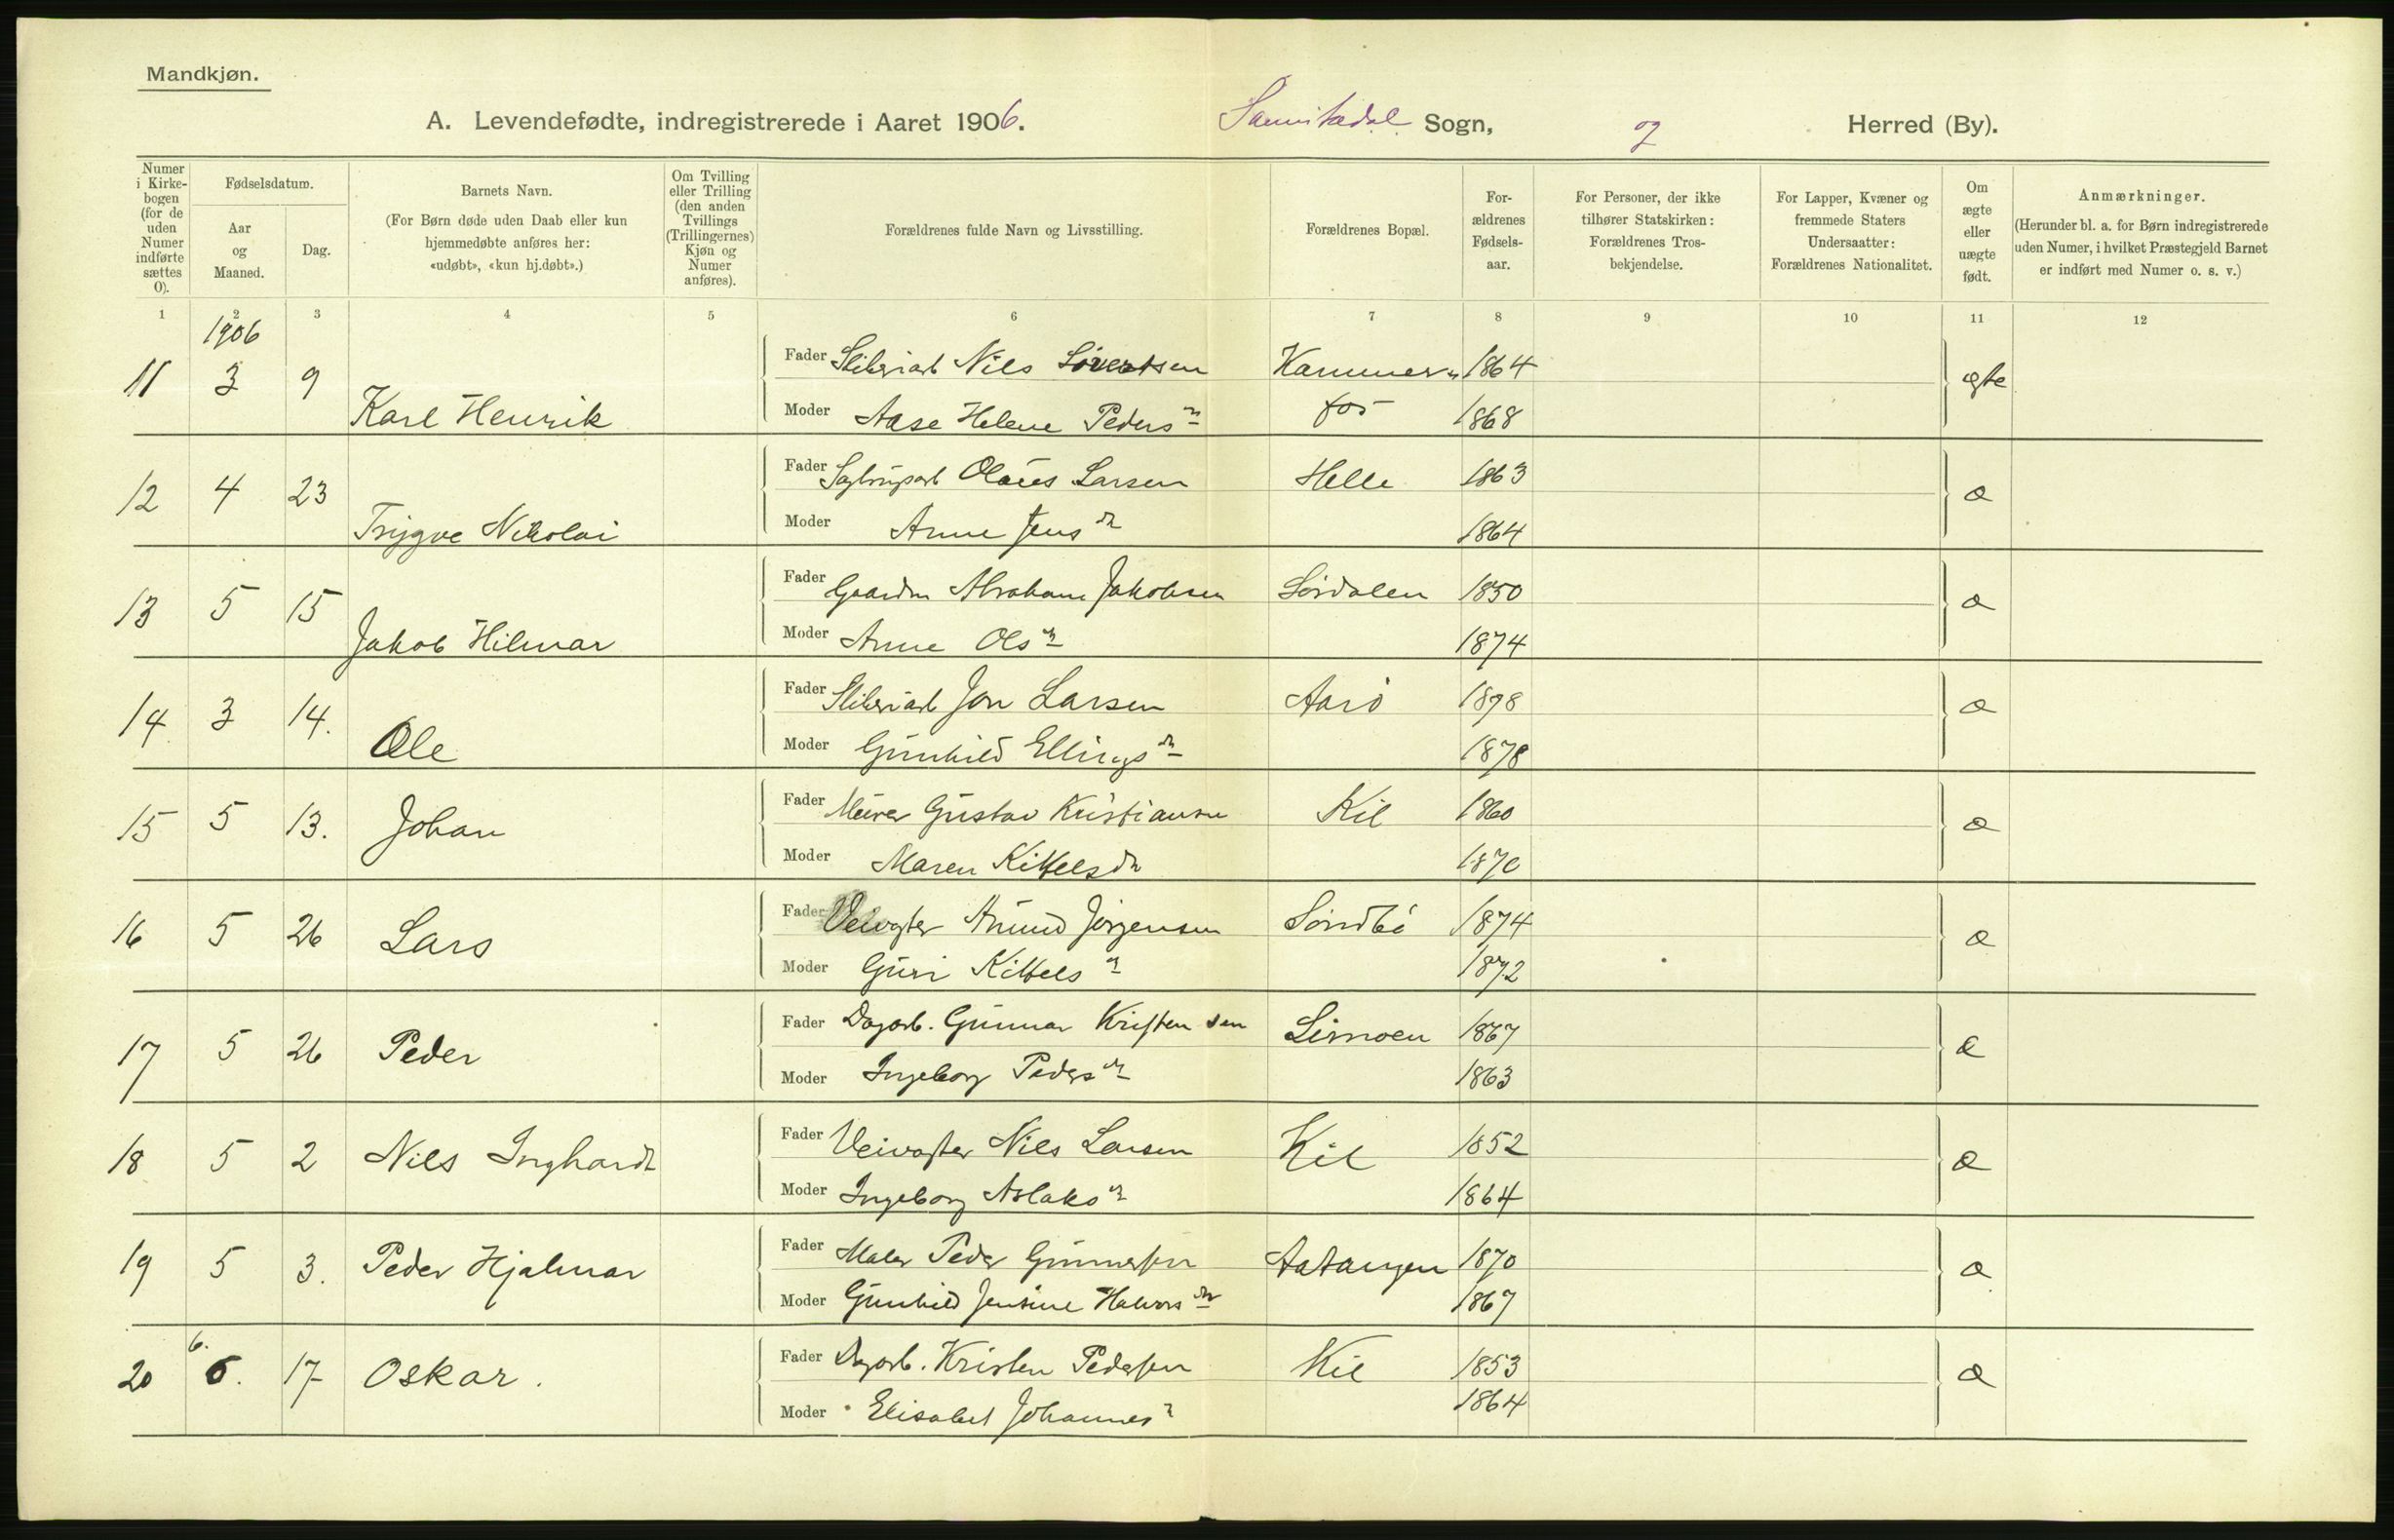 Mandkjøn.
A. Levendefødte, indregistrerede i Aaret 1906. Sannikedal Sogn, og Herred (By).
Numer i Kirkebogen (for de uden Numer indførte sættes O).
Fødselsdatum.
Aar og Maaned.
Dag.
Barnets Navn.
(For Børn døde uden Daab eller kun hjemmedøbte anføres her: «udøbt», «kun hj.døbt».)
Om Tvilling eller Trilling (den anden Tvillings (Trillingernes) Kjøn og Numer anføres).
Forældrenes fulde Navn og Livsstilling.
Forældrenes Bopæl.
Forældrenes Fødselsaar.
For Personer, der ikke tilhører Statskirken: Forældrenes Trosbekjendelse.
For Lapper, Kvæner og fremmede Staters Undersaatter: Forældrenes Nationalitet.
Om ægte eller uægte født.
Anmærkninger.
(Herunder bl. a. for Børn indregistrerede uden Numer, i hvilket Præstegjeld Barnet er indført med Numer o. s. v.)
1 2 3 4 5 6 7 8 9 10 11 12
1906
11 3 9 Karl Henrik Fader Sliberiarb Nils Sivertsen Kammer- 1864 ægte
Moder Aase Helene Peders dr fos 1868
12 4 23 Trygve Nikolai Fader Olaus Larsen Helle 1863 æ
Moder Anne Jens dr 1864
13 5 15 Jakob Hilmar Fader Gaardm Abraham Jakobsen Sørdalen 1850 æ
Moder Anne Ols dr 1874
14 3 14. Ole Fader Sliberiarb Jon Larsen Aarø 1878 æ
Moder Gunhild Ellings dr 1878
15 5 13. Johan Fader Murer Gustav Kristiansen Kil 1860 æ
Moder Maren Kittelsdr 1870
16 5 26 Lars Fader Veivogter Anund Jørgensen Søndbø 1874 æ
Moder Guri Kittels dr 1872
17 5 26 Peder Fader Dagarb. Gunnar Kristensen Limoen 1867 æ
Moder Ingeborg Peders dr 1863
18 5 2 Nils Inghardt Fader Veivogter Nils Larsen Kil 1852 æ
Moder Ingeborg Aslaks dr 1864
19 5 3. Peder Hjalmar Fader Maler Peder Gunnersen Aatangen 1870 æ
Moder Gunhild Jensine Halvors dr 1867
20 6. 6. 17 Oskar. Fader Dagarb. Kristen Pedersen Kil 1853 æ
Moder Elisabet Johannes dr 1864